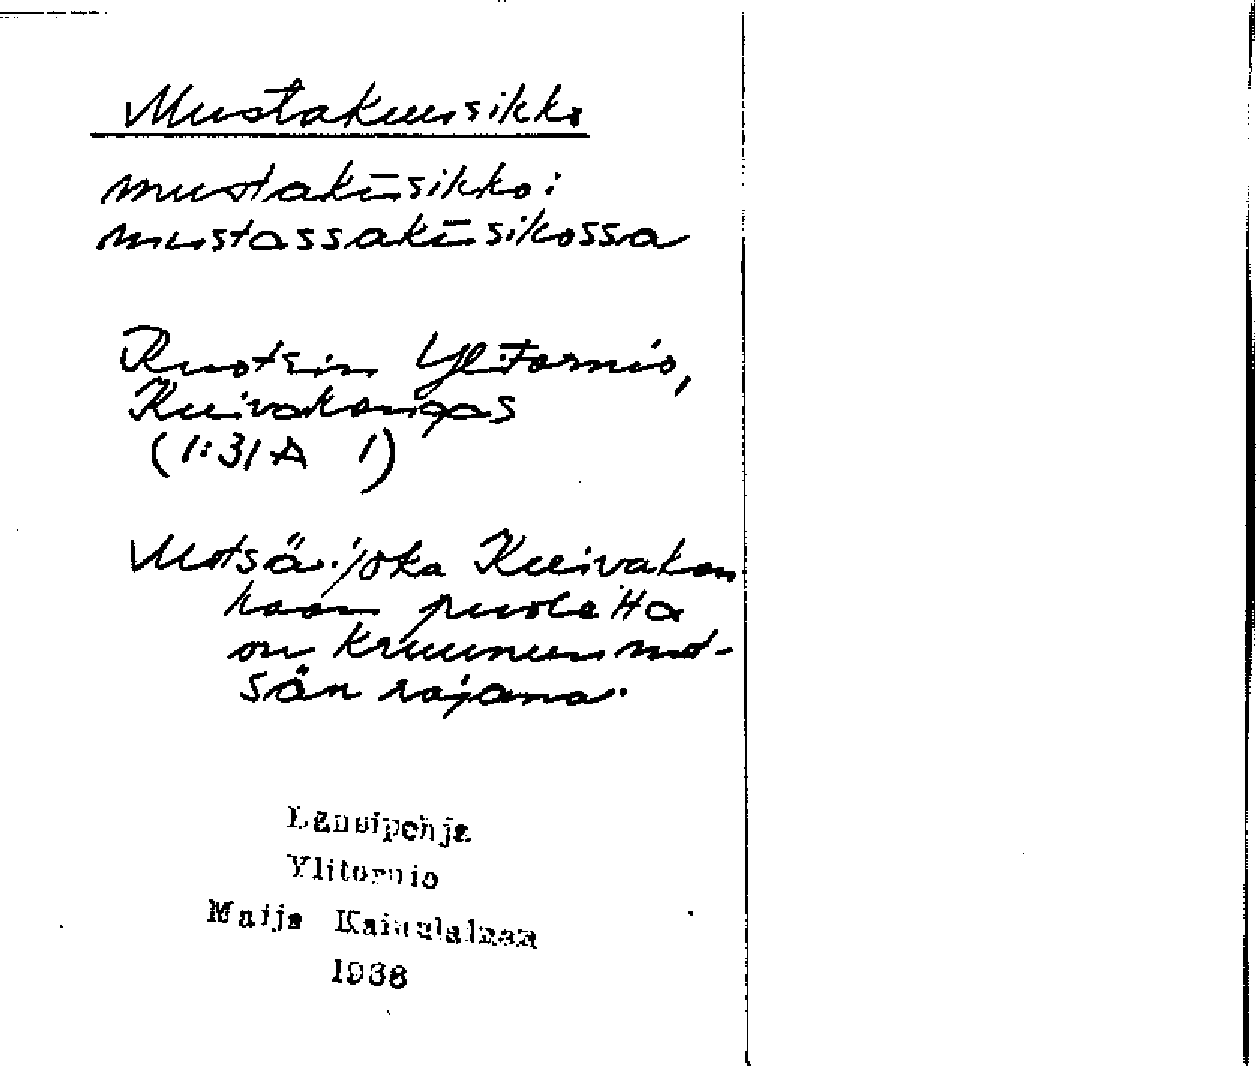 Mustakuusikko
mustakūsikko:
mustassakūsikossa
Ruotsin Ylitornio,
Kuivakangas
(1:31A 1)
Metsä, joka Kuivakan
kaan puolelta
on kruunun met-
sän rajana.
Länsipohja
Ylitornio
Maija Kainulainen
1936